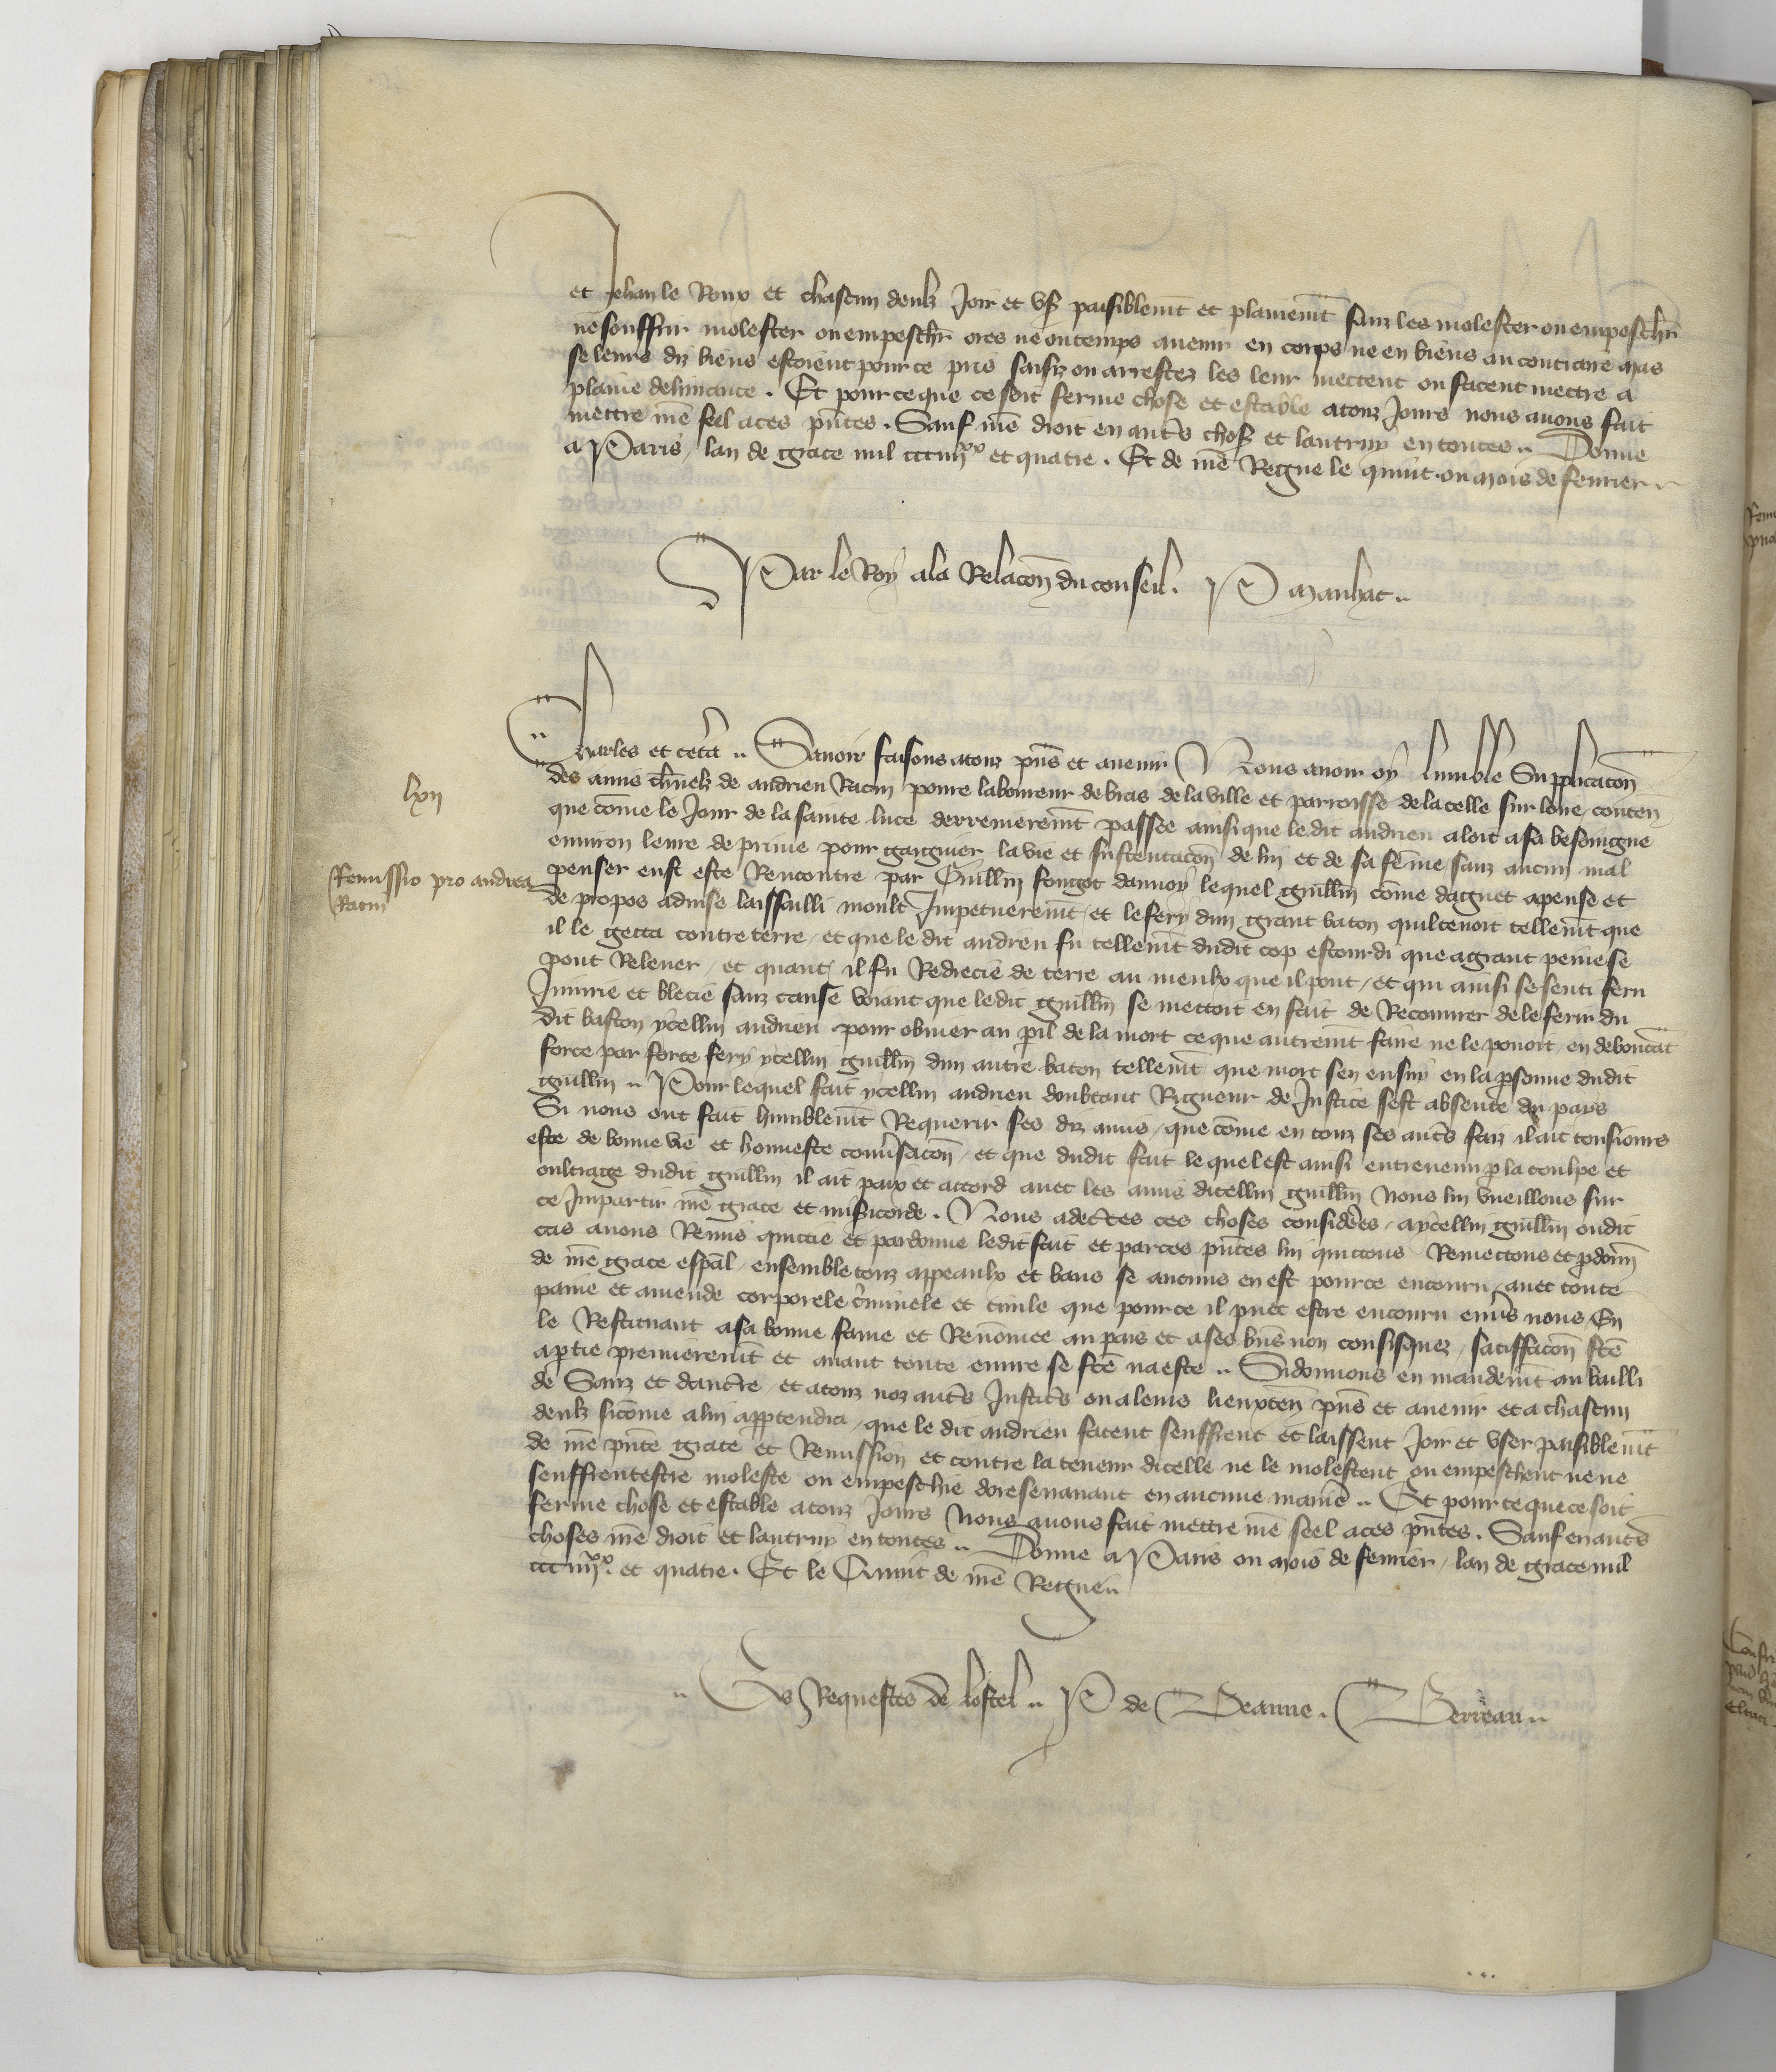 et Jehan le Roux et chascun deulx Joir et usẽ paisiblemt̃ et plainemt̃ sanz les molester ou empeschr̃
ne souffrir molester ou empeschr̃ ores ne ou temps auenir en corps ne en biens au contraire mas
se leurs diz biens estoient pour ce pris saisiz ou arrestez les leur mettent ou facent mettre a
plaine deliurance . Et pour ce que ce soit ferme chose et estable a touz Jours nous auons fait
mettre nr̃e seel a ces pñtes . Sauf nr̃e droit en autr̃s chosẽ et lautruy en toutes .. Donne
a Paris / lan de grace mil ccciiijxx et quatre . Et de nr̃e Regne le quint . ou mois de feurier ..
Par le Roy a la Relacoñ du conseil . P Manhac ..
Charles et cetẽa .. Sauoir faisons a touz pñs et auenir Nous auoir oy lumble Supplicacoñ
des amis charñelz de andrieu Racin poure laboureur de bras de la ville et parroisse de la celle sur loue / conteñ
que com̃e le Jour de la sainte luce derrenieremt̃ passee ainsi que le dit andrieu aloit a sa besoingne
enuiron leure de prime pour gaignier la vie et sustentacoñ de lui et de sa fem̃e / sanz aucun mal
penser eust este Rencontre par Guillm̃ fougot dannoy lequel guillm̃ com̃e daguet apense et
de propos aduise lassailli moult Impetueusemt̃ / et le fery dun grant baton quil tenoit tellemt̃ que
il le getta contre terre / et que le dit andrieu fu tellemt̃ dudit cop estourdi que a grant peine se
pout Releuer / et quant il fu Redrecie de terre au mieulx que il pout / et qui ainsi se senti feru
Iniurie et blecie sanz cause voiant que ledit guillm̃ se mettoit en fait de Recouurer de le ferir du
dit baston ycellui andrieu pour obuier au ꝑil de la mort ce que autremt̃ faire ne le pouoit / en deboutãt
force par force fery ycellui guillm̃ dun autre baton tellemt̃ que mort sen ensuy en la ꝑsonne dudit
guillm̃ .. Pour lequel fait ycellui andrieu doubtant Rigueur de Justice sest absente du pays
Si nous ont fait humblemt̃ Requerir ses diz amis / que com̃e en touz ses autr̃s faiz il ait tousiours
este de bonne vie et honneste conuẽsacoñ / et que dudit fait le quel est ainsi entreuenu ꝑ la coulpe et
oultrage dudit guillm̃ il ait paix et accord auec les amis dicellui guillm̃ Nous lui vueillons sur
ce Impartir nr̃e grace et misẽicorde . Nous adecẽtes ces choses considerẽes / a ycellui guillm̃ oudit
cas auons Remis quictie et pardonne ledit fait et par ces pñtes lui quictons Remectons et ꝑdonñ
de nr̃e grace espãl / ensemble touz appeaulx et bans se aucuns en est pour ce encouru / auec toute
paine et amende corporele crĩminele et ciuile que pour ce il puet estre encouru enuẽs nous / En
le Restituant a sa bonne fame et Renom̃ee au pais et a ses biẽs non confisquez / satisfacoñ fcẽ
a ꝑtie premieremt̃ et auant toute euure se fcẽ na este .. Si donnons en mandemt̃ au bailli
de Sanz et daucẽre / et a touz noz autr̃s Justicẽs ou a leurs lieuxteñ pñs et auenir et a chascun
deulx sicom̃e a lui appartendra / que le dit andrieu facent seuffrent et laissent Joir et vser paisiblemt̃
de nr̃e pñte grace et Remission et contre la teneur dicelle ne le molestent ou empeschent ne ne
seuffrent estre moleste ou empeschie doresenauant en aucune maniẽ .. Et pour ce que ce soit
ferme chose et estable a touz Jours Nous auons fait mettre nr̃e seel a ces pñtes . Sauf en autr̃s
choses nr̃e droit et lautruy en toutes .. Donne a Paris ou mois de feurier / lan de grace mil
ccciiijxx. et quatre . Et le Quint de nr̃e Regne ..
.. Es Requestes de lostel .. P de Beaune . Berreau ..
lxii
Remissio pro andrea
Racin